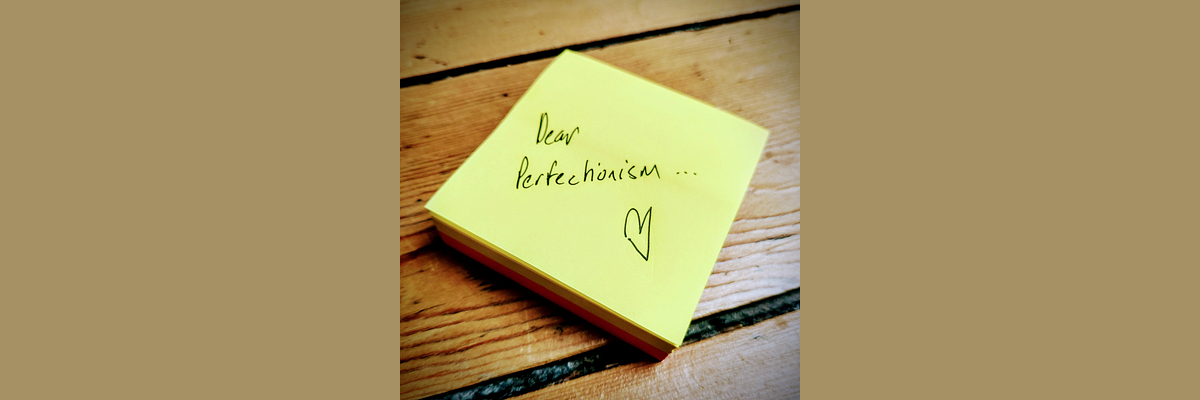 Dear
Perfectionism ...